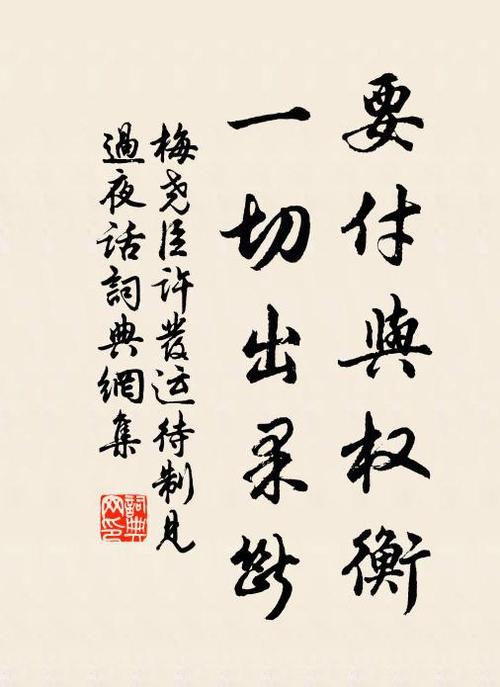 要付與权衡
一切出果斷
梅尧臣許發运待制見
過夜話詞典網集
詞典
网印